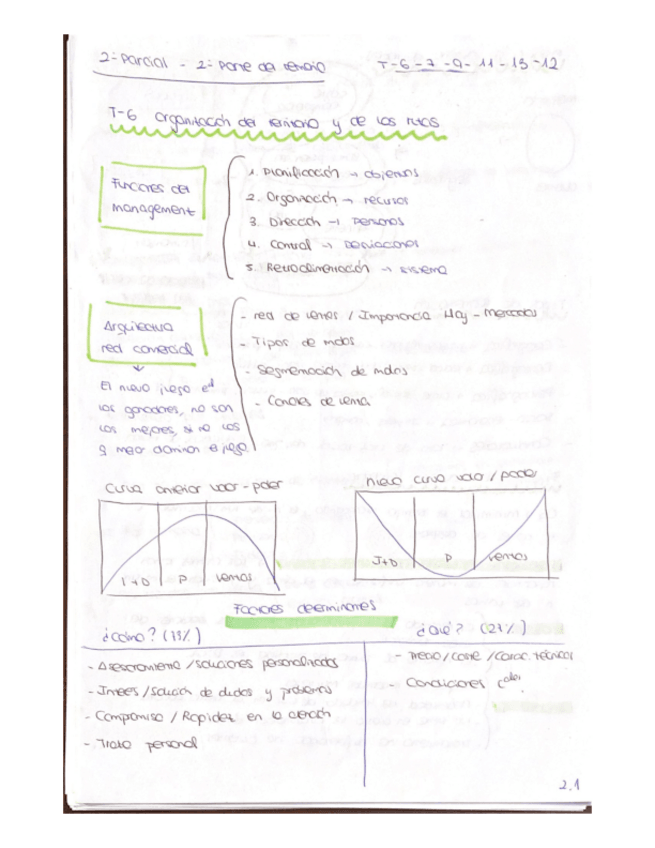 2º Parcial - 2ª Parte del temario T-6-7-9-11-13-12
T-6 Organización del territorio y de las rutas
Funciones del
management
1. Planificación → objetivos
2. Organización → recursos
3. Dirección → Personas
4. Control → Desviaciones
5. Retroalimentación → sistema
Arquitectura
red comercial
- red de ventas / Importancia Hoy - mercados
- Tipos de mdos
- Segmentación de mdos
- Canales de venta
El nuevo juego
los ganadores, no son
los mejores, si no los
q mejor dominan el juego.
Curva anterior valor - poder
nueva curva valor / poder
I+D P Ventas
I+D P Ventas
Factores determinantes
¿Cómo? (73%)
¿Qué? (27%)
- Asesoramiento / soluciones personalizadas
- Interés / Solución de dudas y problemas
- Compromiso / Rapidez en la atención
- Trato personal
- Precio / Coste / Carac. técnicas
- Condiciones
2.1